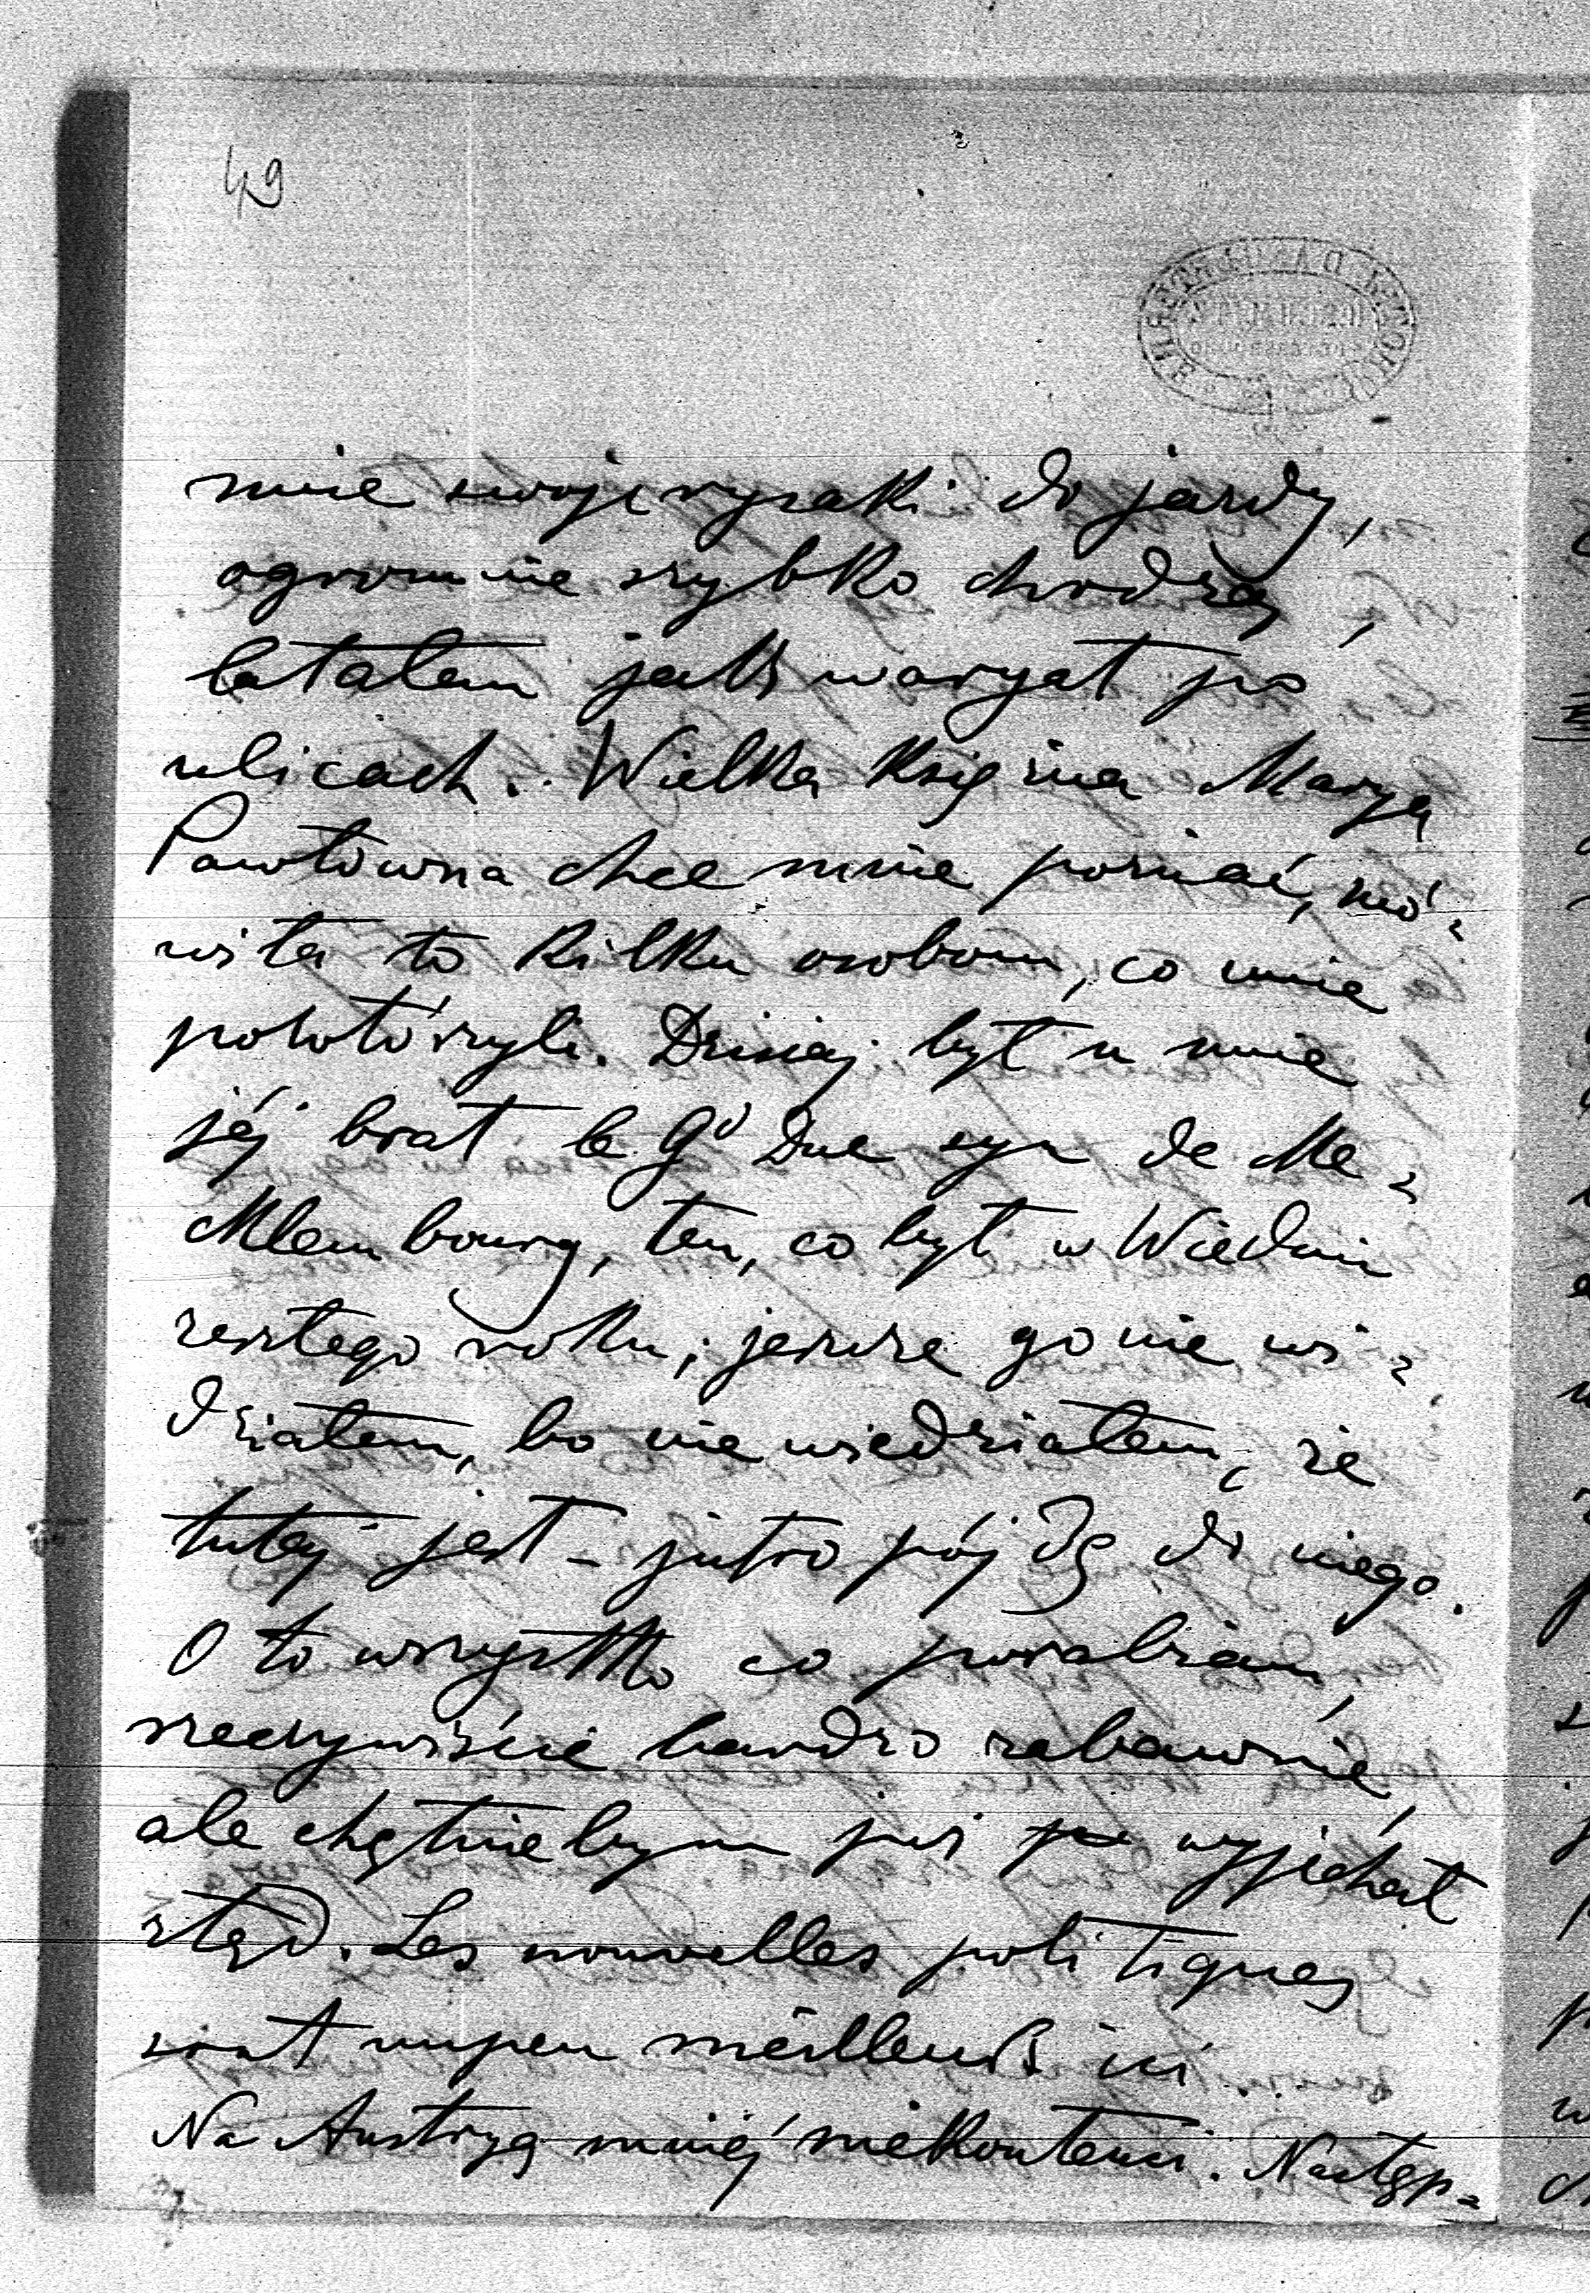 49
mnie swoje rysaki do jazdy,
ogromnie szybko chodzą,
latałem jak waryat po
ulicach. Wielka Księżna Marya
Pawłowna chce mnie poznać, mó=
wiła to kilku osobom, co mnie
powtórzyli. Dzisiaj był u mnie
jéj brat le Gd Duc syn de Me=
cklembourg, ten, co był w Wiedniu
zeszłego roku; jeszcze go nie wi=
działem, bo nie wiedziałem, że
tutaj jest – jutro pójdę do niego.
Oto wszystko co porabiam,
rzeczywiście bardzo zabawnie,
ale chętnie bym już wyjechał
ztąd. Les nouvelles politiques
sont un peu meilleurs ici
Na Austryą mniéj niekontenci. Następ=